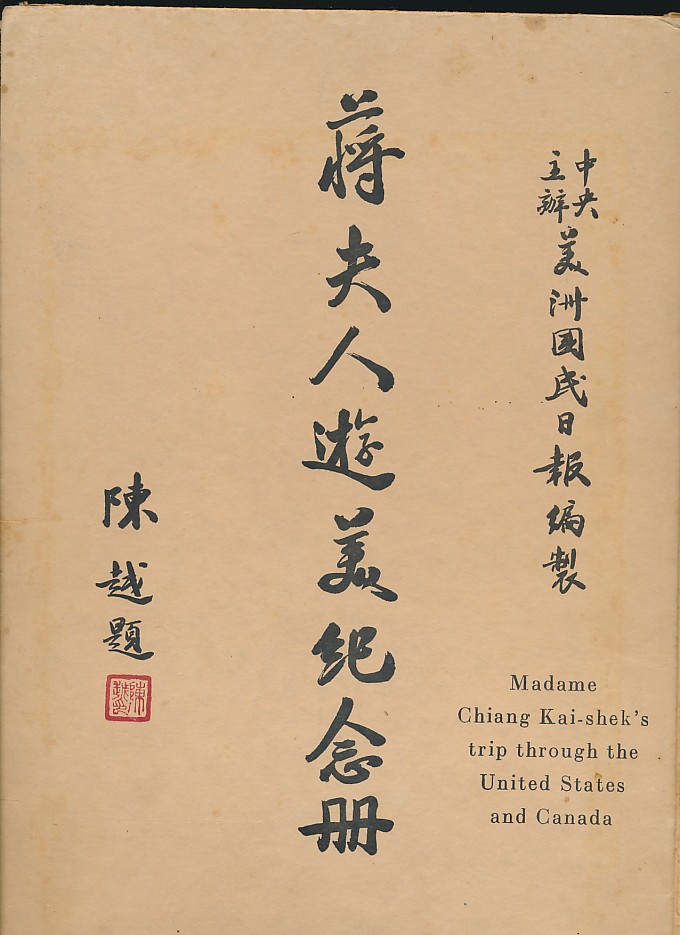 中央主辦美洲國民日報編製
蔣夫人遊美紀念册
陳越題
Madame
Chiang Kai-shek's
trip through the
United States
and Canada